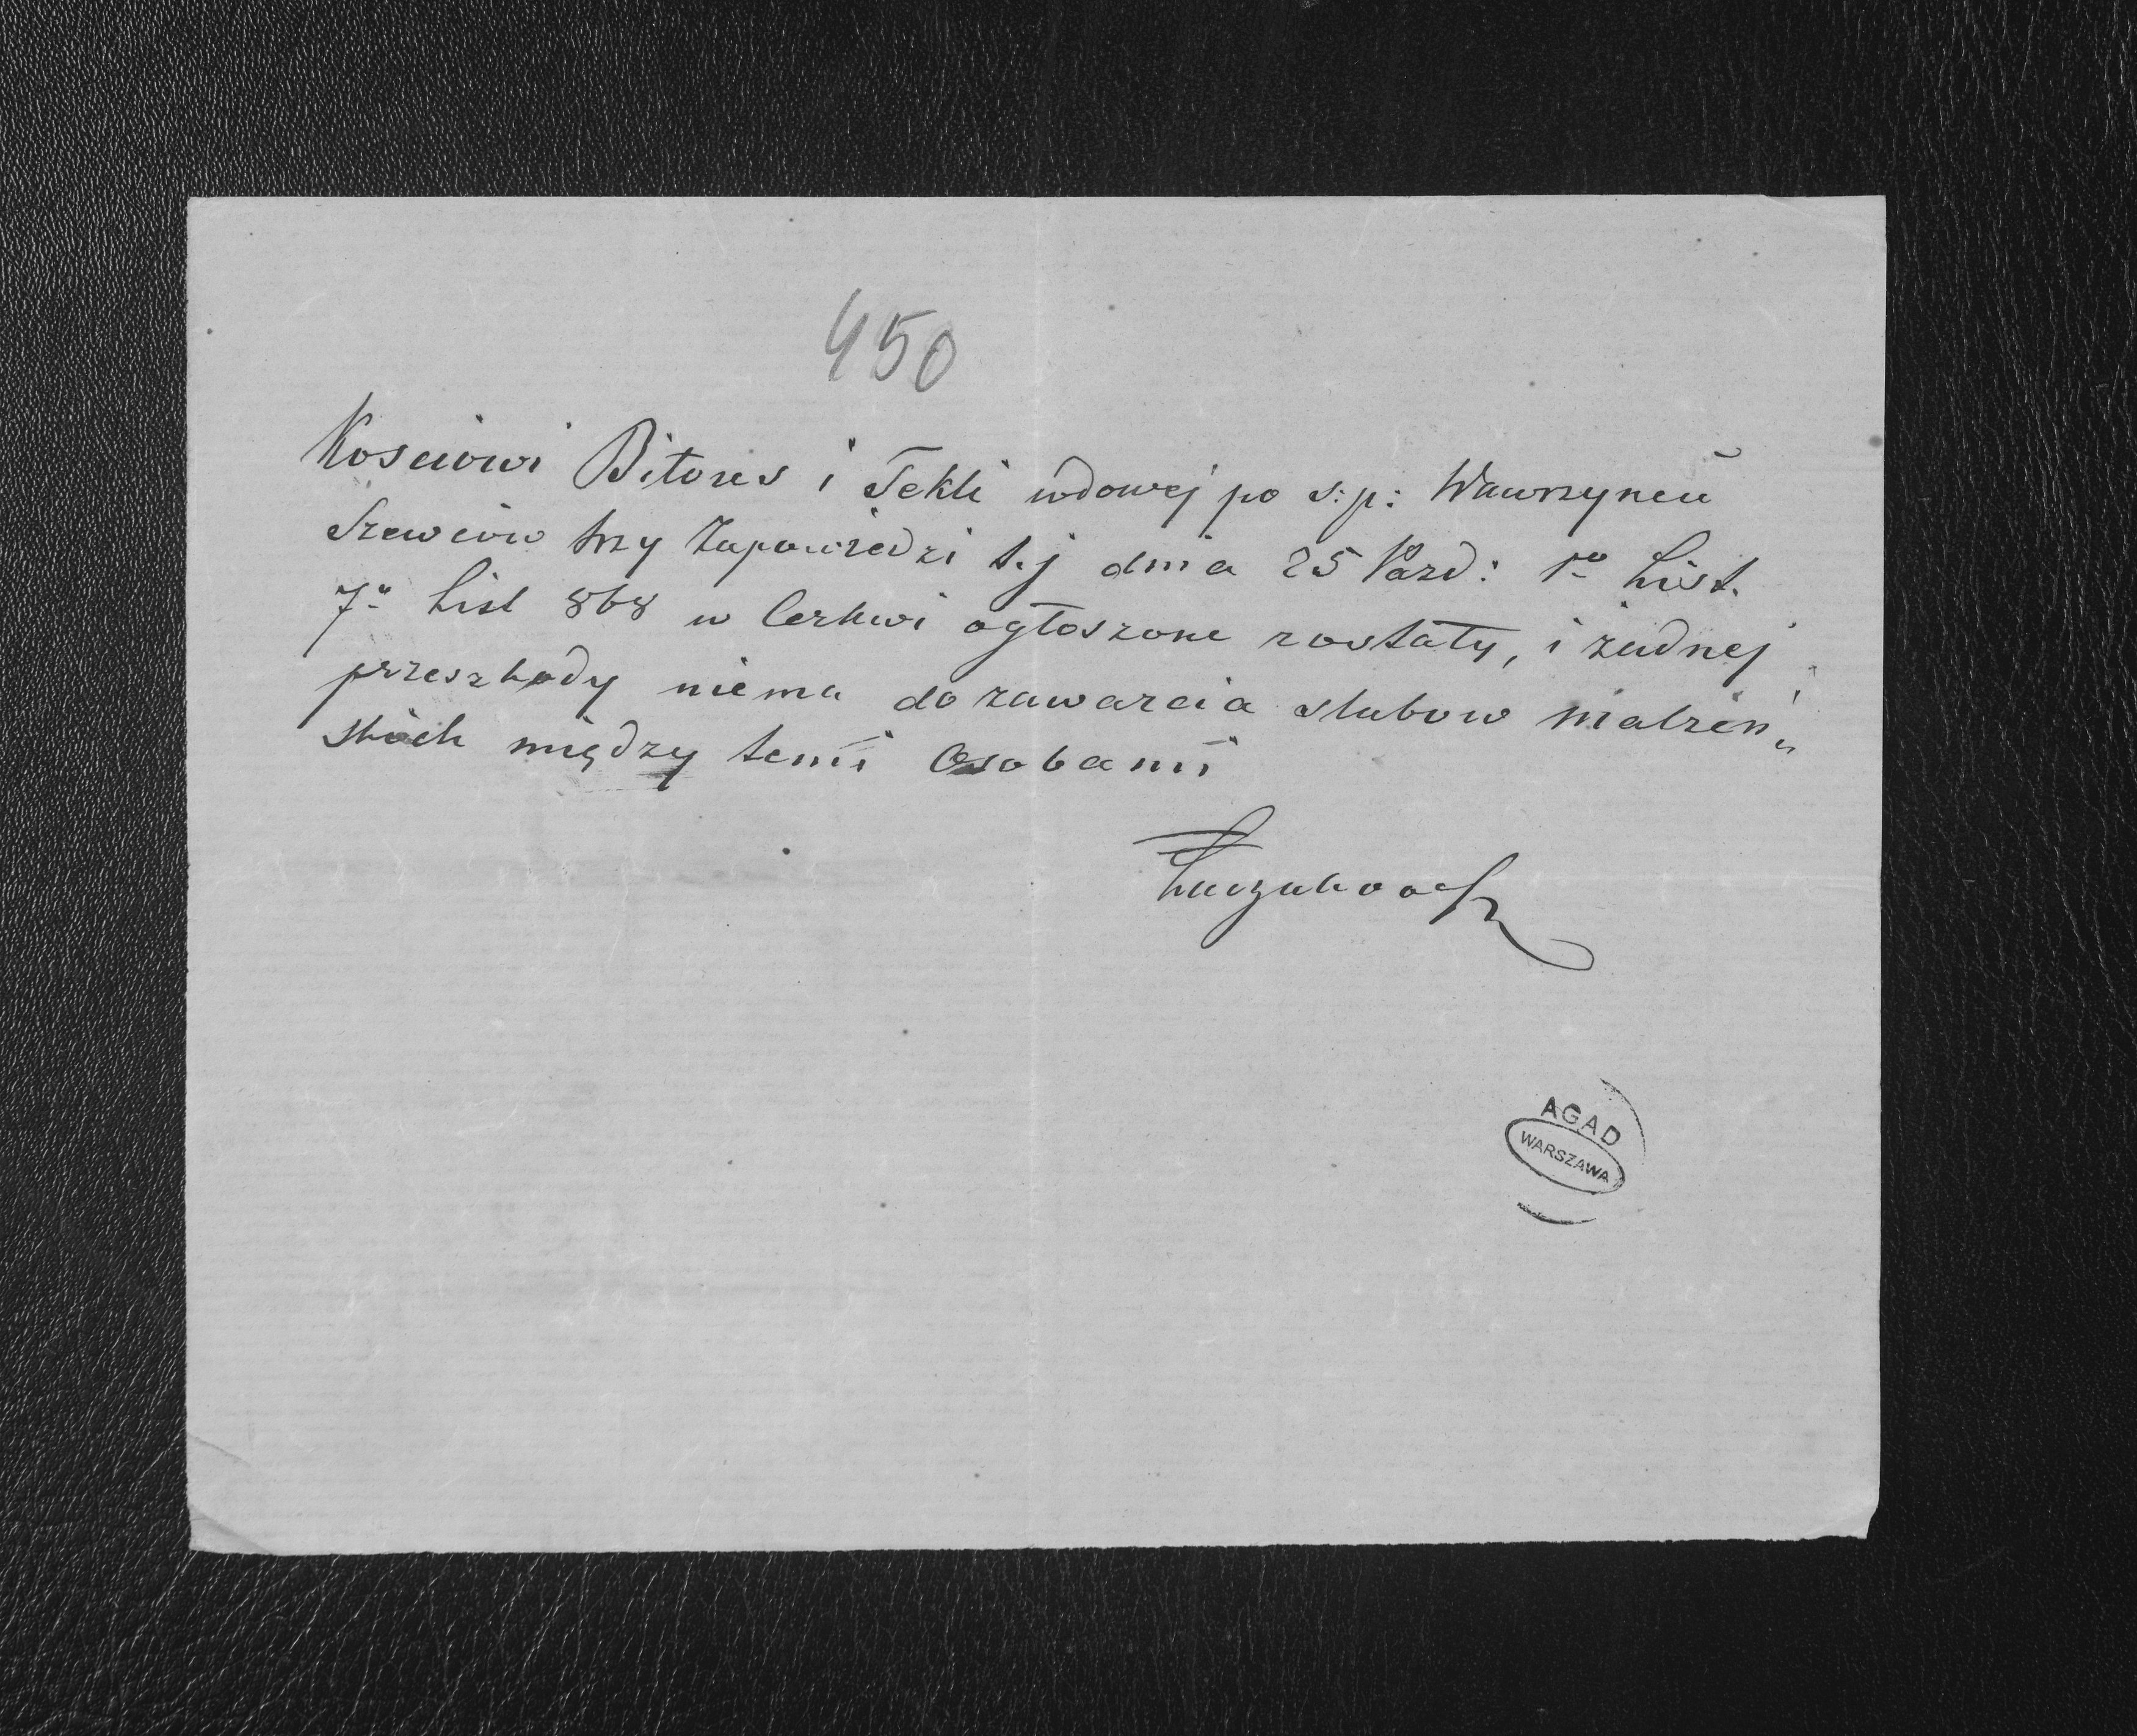 450
Kosciowi Bitous i Tekli wdowej po s:p: Wawrzyncŭ
Szewców trzy Zapowiedzi t.j dnia 25 Pazd: 1º List.
7º List 868 w Cerkwi ogłoszone zostały, i żadnej
przeszkody niema do zawarcia slubow małżeń„
skich między temi Osobami
AGAD
WARSZAWA